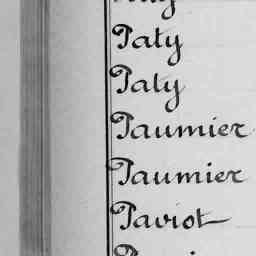 Paty
Paty
Paumier
Paumier
Paviot